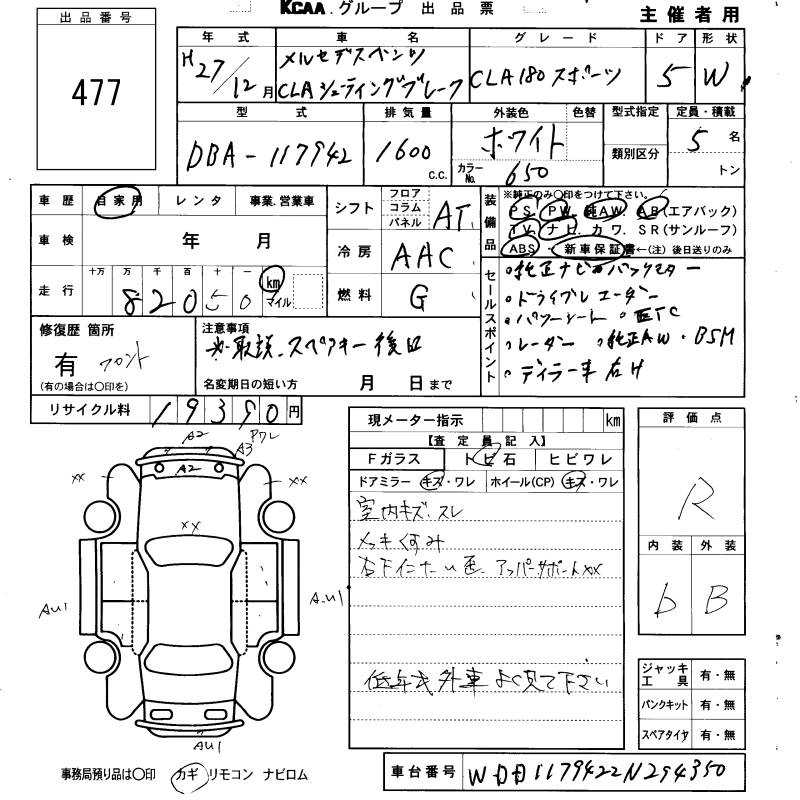 KCAA.グループ 出品票
主催者用
出品番号
477
年式 車名 グレード ドア 形状
H27/12月 メルセデスベンツ CLAシューティングブレーク CLA180 スポーツ 5 W
型式 排気量 外装色 色替 型式指定 定員・積載
DBA-117942 1600 c.c. ホワイト 類別区分 5名
カラーNo. 650 トン
車歴 自家用 レンタ 事業.営業車
シフト フロア コラム パネル AT
車検 年 月
冷房 AAC
走行 十万 万 千 百 十 一 km マイル
82050
燃料 G
装備品
※純正のみ○印をつけて下さい。
PS. PW. 純AW. AB(エアバック)
TV. ナビ. カワ. SR(サンルーフ)
ABS ・ 新車保証書←(注)後日送りのみ
セールスポイント
・純正ナビ・バックモニター
・ドライブレコーダー
・パワーシート ・ETC
・レーダー ・純正AW・BSM
・ディーラー車 右H
修復歴 箇所
有 フロント
(有の場合は○印を)
注意事項
※取説.スペアキー後日
名変期日の短い方 月 日まで
リサイクル料 19390円
現メーター指示 km
【査定員記入】
Fガラス トビ石 ヒビワレ
ドアミラー キズ・ワレ ホイール(CP) キズ・ワレ
室内キズ.スレ
メッキくすみ
アッパーサポートxx
低年式外車 よく見て下さい
評価点
R
内装 外装
b B
ジャッキ工具 有・無
パンクキット 有・無
スペアタイヤ 有・無
A2 ワレ
A3
A2
xx xx
xx
AU1 AU1
AU1
事務局預り品は○印 カギ リモコン ナビロム
車台番号 WDD1179422N294350